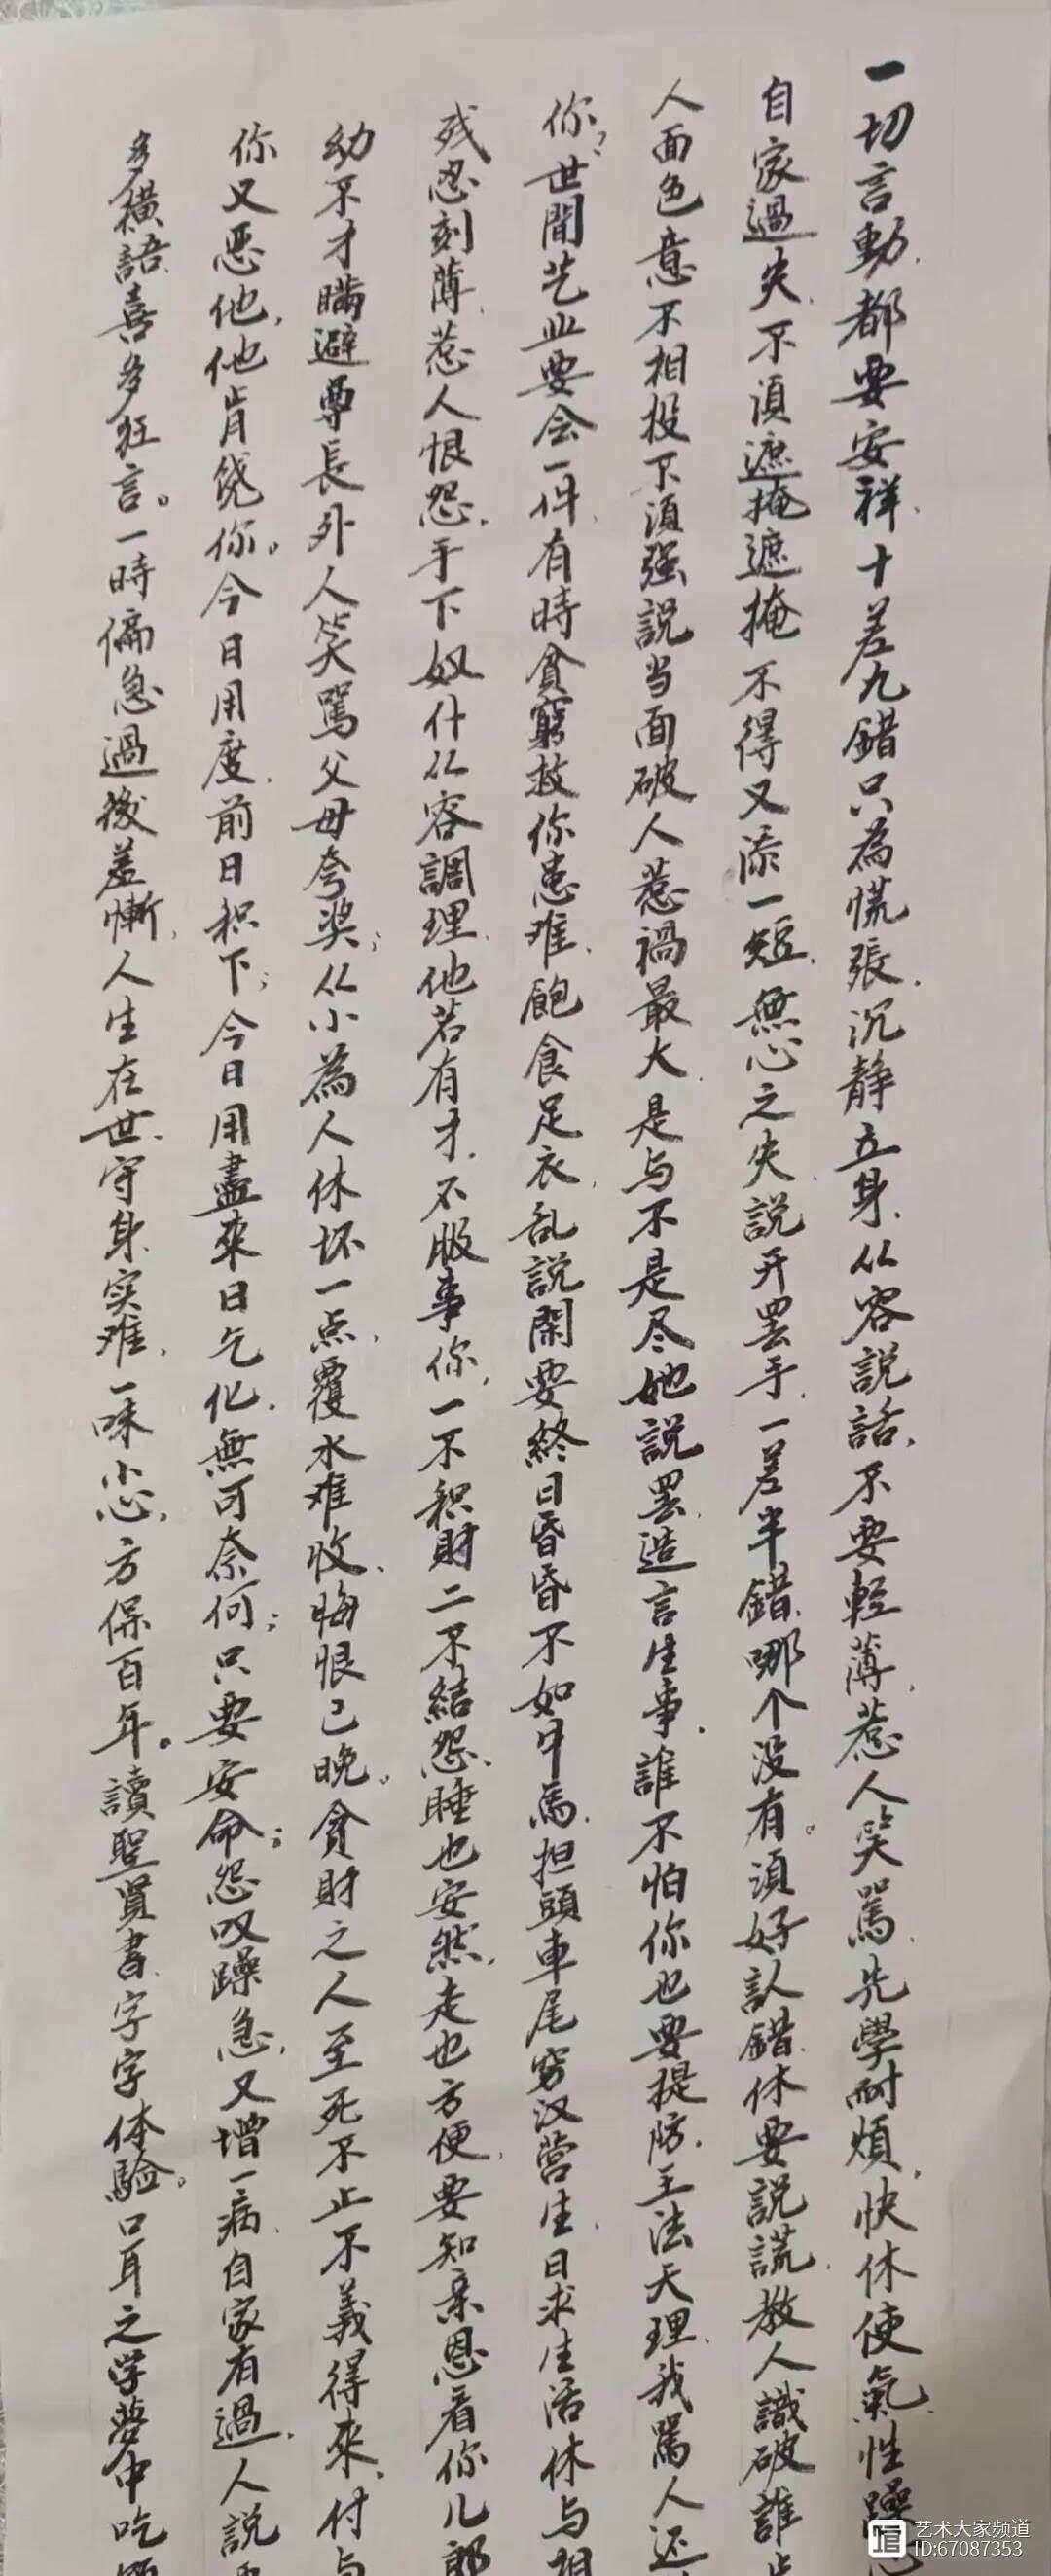 一切言動都要安祥十差九錯只為慌張沉靜立身从容説話不要輕薄惹人笑罵先學耐煩快休使氣性躁心
自家過失不須遮掩遮掩不得又添一短無心之失説开罢手一差半錯哪个没有須好認錯休要説謊教人識破誰肯
人面色意不相投不須强説当面破人惹禍最大是与不是尽她説罢造言生事誰不怕你也要提防王法天理我罵人还
你世間艺业要会一件有時貧窮救你患难飽食足衣乱説閑耍終日昏昏不如牛馬担頭車尾穷汉营生日求生活休与相
残忍刻薄惹人恨怨手下奴什从容調理他若有才不服事你一不积財二不結怨睡也安然走也方便要知亲恩看你儿郎
幼不才瞞避尊長外人笑罵父母夸奖从小為人休坏一点覆水难收悔恨已晚。貪財之人至死不止不義得來付与
你又恶他他肯饶你。今日用度前日积下今日用盡來日乞化無可奈何只要安命怨叹躁急又增一病自家有過人説
多横語喜多狂言。一時偏急過後羞慚人生在世守身实难一味小心方保百年。讀聖賢書字字体驗。口耳之学夢中吃
艺术大家频道
ID:67087353